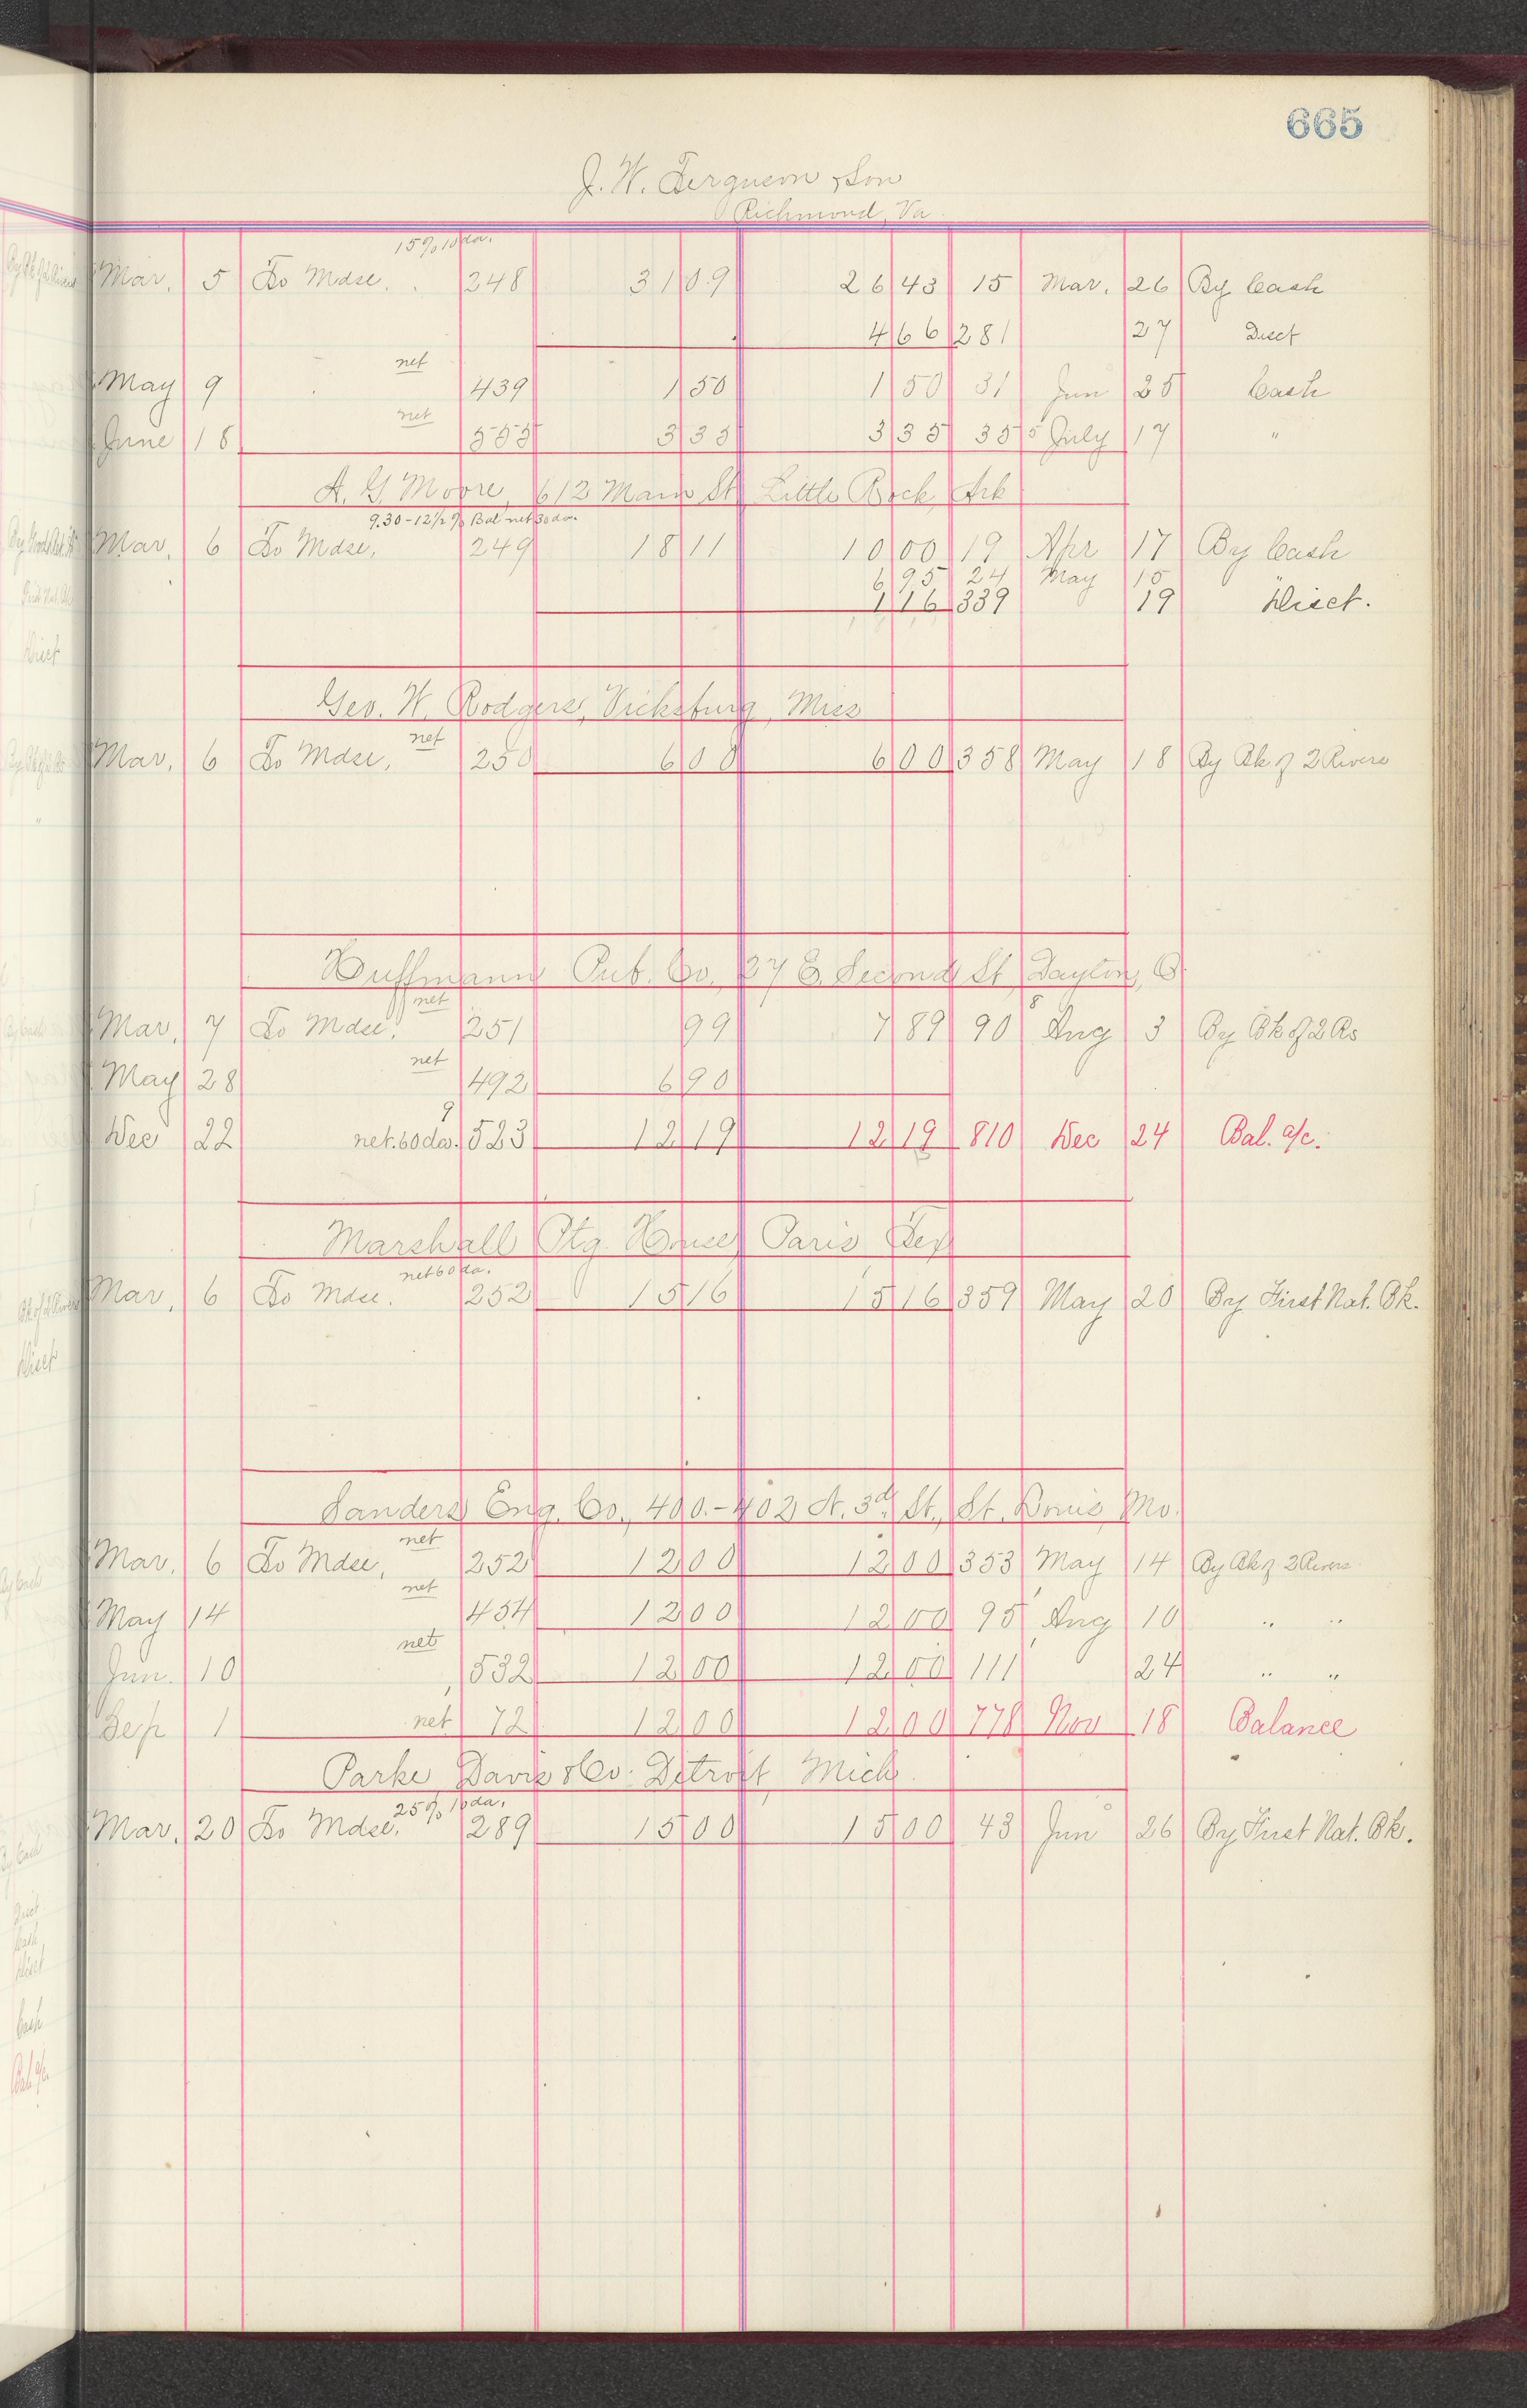 665
J. W. Ferguson & Son
Richmond, Va.
15% 10 da.
Mar. 5 To Mdse. 248 31 09 26 43 15 Mar. 26 By Cash
4 66 281 27 Disct
net
May 9 439 1 50 1 50 31 Jun 25 Cash
net
June 18 555 3 35 3 35 35 July 17 "
A. G. Moore, 612 Main St Little Rock, Ark
9.30 - 12½% Bal net 30 da.
Mar. 6 To Mdse, 249 18 11 10 00 19 Apr 17 By Cash
6 95 24 May 15 "
1 16 339 19 Disct.
Geo. W. Rodgers, Vicksburg, Miss
net
Mar. 6 To Mdse, 250 6 00 6 00 358 May 18 By Bk of 2 Rivers
Huffmann Pub. Co. 27 E. Second St Dayton, O.
net
Mar. 7 To Mdse. 251 99 7 89 90 Aug 3 By Bk of 2 Rs
net
May 28 492 6 90
9
Dec 22 net. 60 da. 523 12 19 12 19 810 Dec 24 Bal. a/c.
Marshall Ptg. House Paris Tex
net 60 da.
Mar. 6 To Mdse. 252 15 16 15 16 359 May 20 By First Nat. Bk.
Sanders Eng. Co., 400-402 N. 3d St., St. Louis Mo.
net
Mar. 6 To Mdse, 252 12 00 12 00 353 May 14 By Bk of 2 Rivers
net
May 14 454 12 00 12 00 95 Aug 10 " "
net
Jun. 10 532 12 00 12 00 111 24 " "
Sep 1 net 72 12 00 12 00 778 Nov 18 Balance
Parke, Davis & Co. Detroit, Mich.
25% 10 da.
Mar. 20 To Mdse. 289 15 00 15 00 43 Jun 26 By First Nat. Bk.